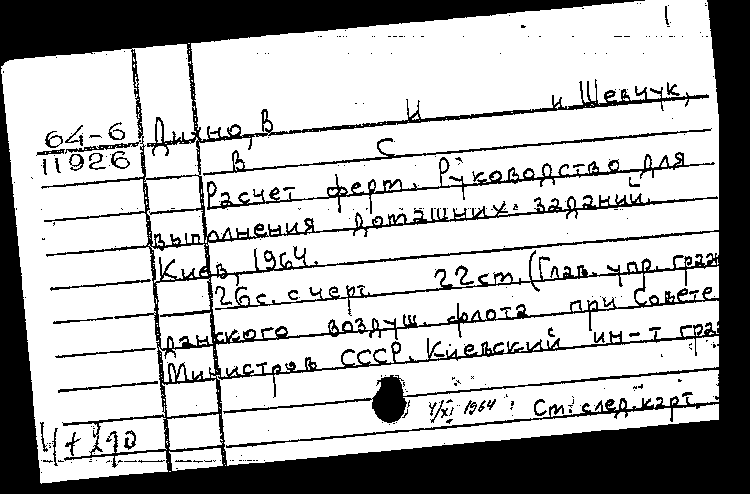 1
64-6 Дихно, В И и Шевчук,
11926 В С
Расчет ферм. Руководство для
выполнения домашних заданий.
Киев, 1964.
26с. с черт. 22см. (Глав. упр. граж
данского воздуш. флота при Совете
Министров СССР. Киевский ин-т граж
4/XI 1964 См. след. карт.